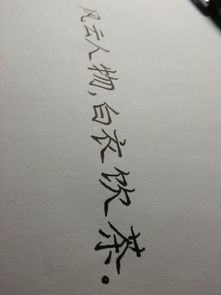 风云人物，白衣饮茶。